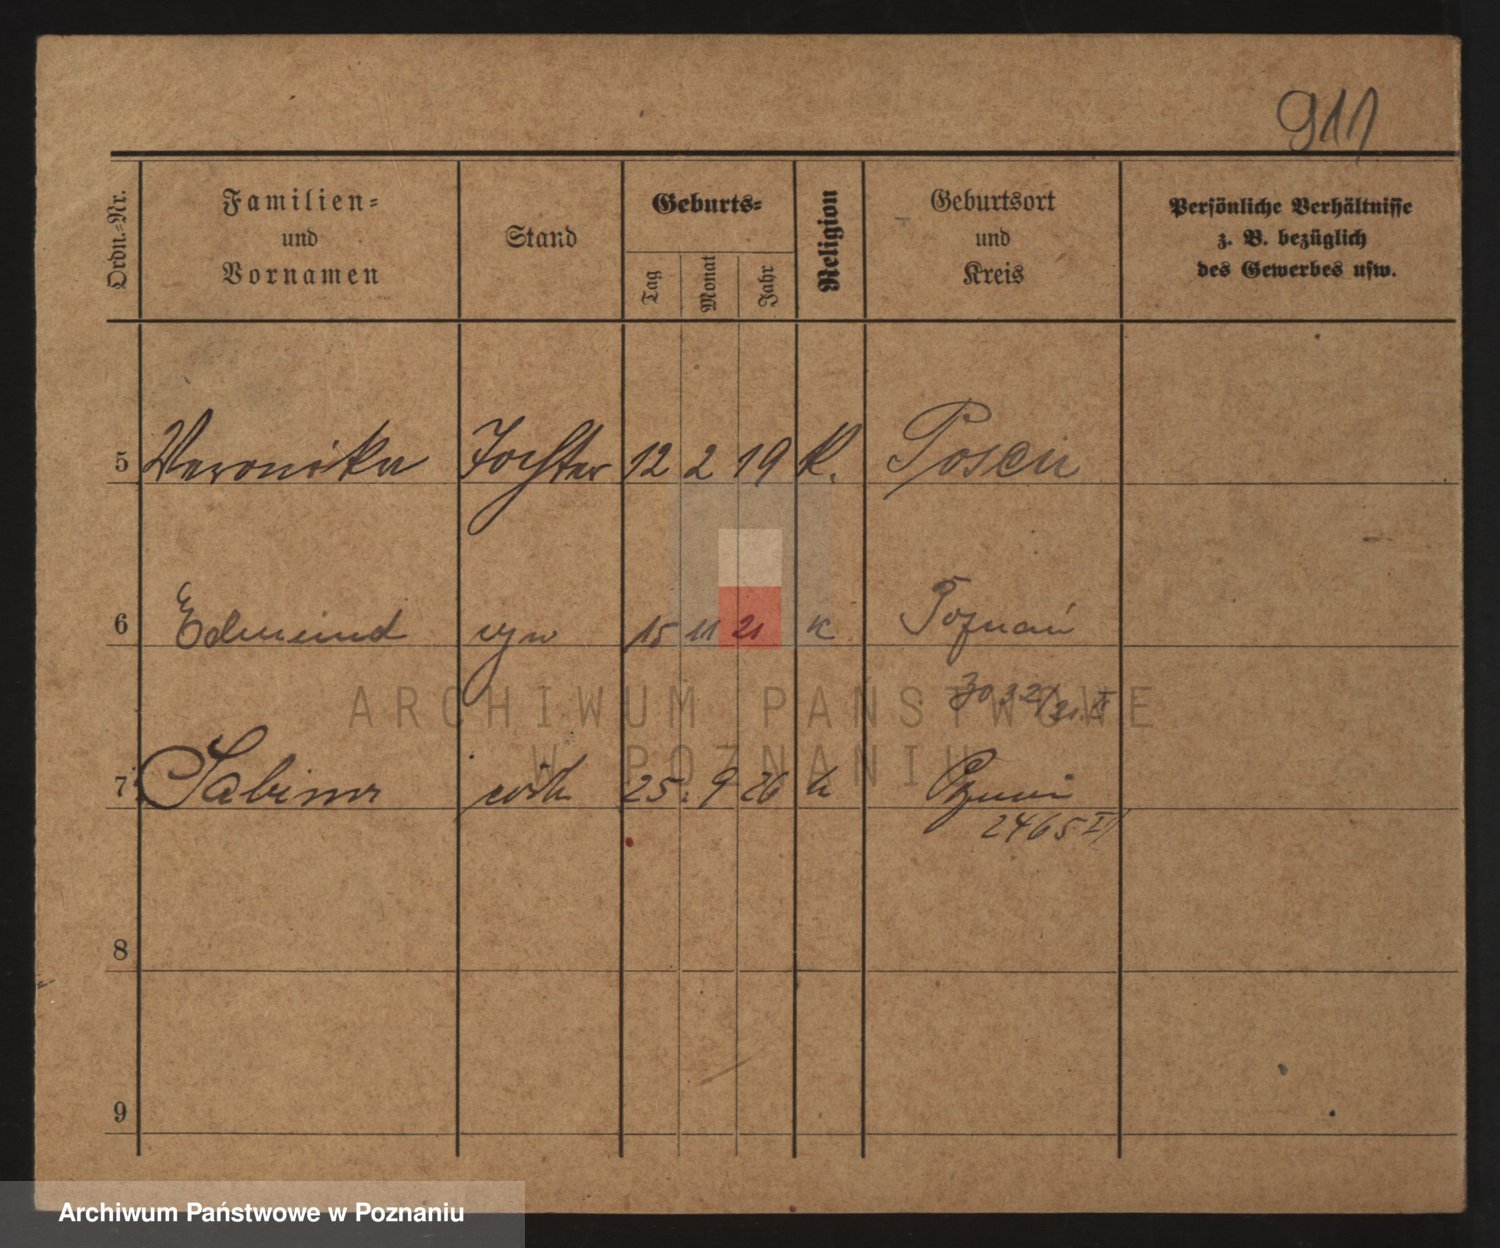 911
Ordn.=Nr. Familien= und Vornamen Stand Geburts= Tag Monat Jahr Religion Geburtsort und Kreis Persönliche Verhältnisse z. B. bezüglich des Gewerbes usw.
5 Veronika Tochter 12 2 19 K. Posen
6 Edmund syn 15 11 21 K Poznań
7 Sabina córk 25. 9 26 k Poznań
2465 IV
8
9
ARCHIWUM PAŃSTWOWE
W POZNANIU
Archiwum Państwowe w Poznaniu